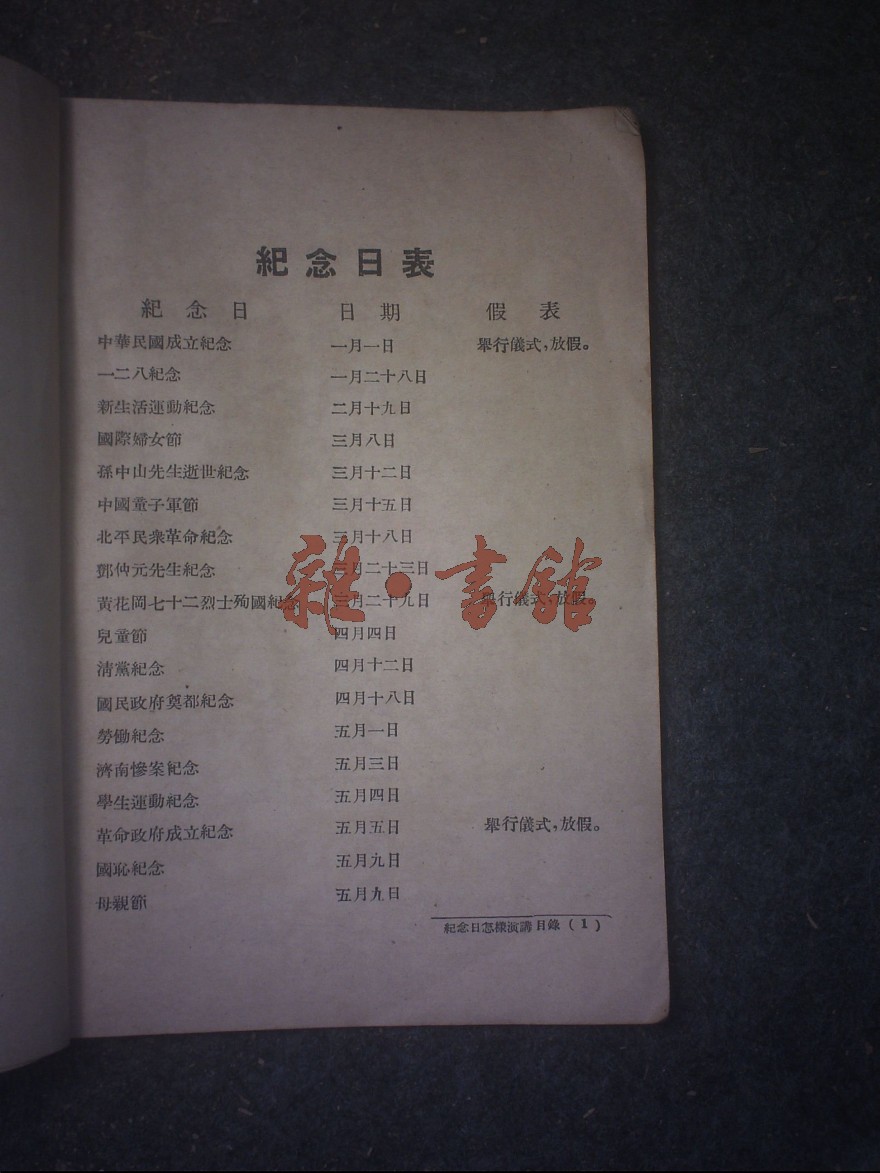 紀念日表
紀念日 日期 假表
中華民國成立紀念 一月一日 舉行儀式，放假。
一二八紀念 一月二十八日
新生活運動紀念 二月十九日
國際婦女節 三月八日
孫中山先生逝世紀念 三月十二日
中國童子軍節 三月十五日
北平民衆革命紀念 三月十八日
鄧仲元先生紀念 三月二十三日
黃花岡七十二烈士殉國紀念 三月二十九日 舉行儀式，放假。
雜·書館
兒童節 四月四日
清黨紀念 四月十二日
國民政府奠都紀念 四月十八日
勞働紀念 五月一日
濟南慘案紀念 五月三日
學生運動紀念 五月四日
革命政府成立紀念 五月五日 舉行儀式，放假。
國恥紀念 五月九日
母親節 五月九日
紀念日怎樣演講目錄（1）